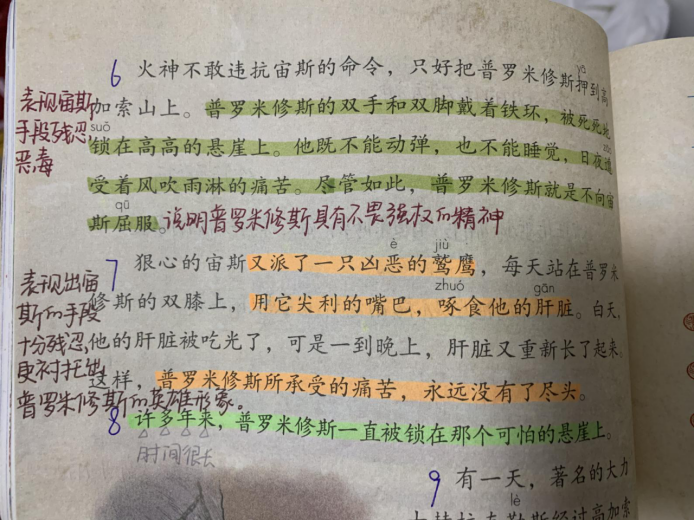 6 火神不敢违抗宙斯的命令，只好把普罗米修斯押到高
yā
表现宙斯
手段残忍，
恶毒
加索山上。普罗米修斯的双手和双脚戴着铁环，被死死地
suǒ
锁在高高的悬崖上。他既不能动弹，也不能睡觉，日夜遭
zāo
受着风吹雨淋的痛苦。尽管如此，普罗米修斯就是不向宙
qū
斯屈服。说明普罗米修斯具有不畏强权的精神
è jiù
7 狠心的宙斯又派了一只凶恶的鹫鹰，每天站在普罗米
zhuó gān
表现出宙
斯的手段
十分残忍，
更衬托出
普罗米修斯的英雄形象。
修斯的双膝上，用它尖利的嘴巴，啄食他的肝脏。白天，
他的肝脏被吃光了，可是一到晚上，肝脏又重新长了起来。
这样，普罗米修斯所承受的痛苦，永远没有了尽头。
8 许多年来，普罗米修斯一直被锁在那个可怕的悬崖上。
时间很长
9 有一天，著名的大力
lè
士赫拉克勒斯经过高加索